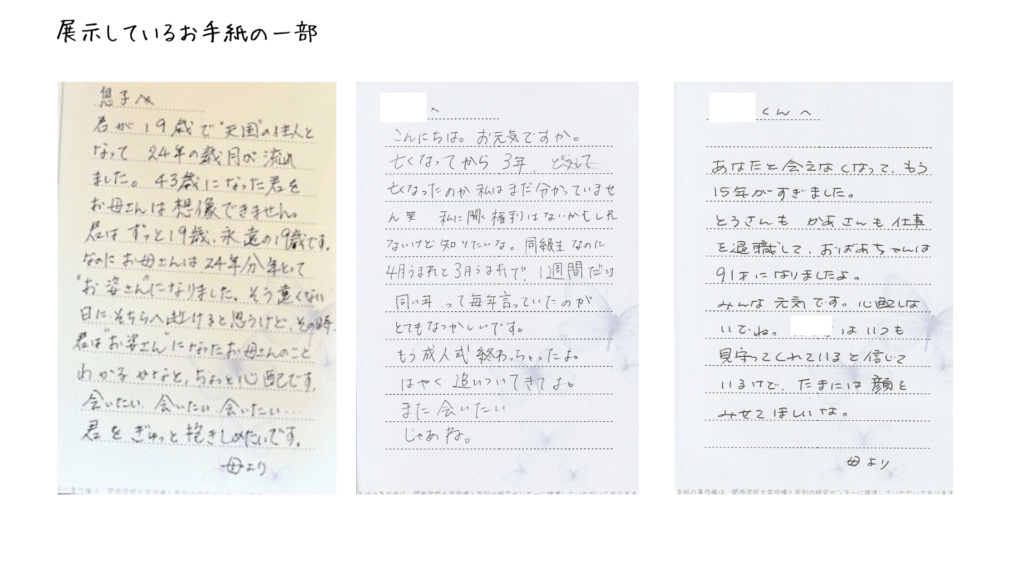 展示しているお手紙の一部
息子へ
君が19歳で"天国"の住人と
なって 24年の歳月が流れ
ました。43歳になった君を
お母さんは想像できません。
君はずっと19歳、永遠の19歳です。
なのにお母さんは24年分年とって
"お婆さん"になりました。そう遠くない
日に、そちらへ逝けると思うけど、その時、
君は"お婆さん"になったお母さんのこと
わかるかなと、ちょっと心配です。
会いたい、会いたい、会いたい…
君をぎゅっと抱きしめたいです。
母より
へ
こんにちは。お元気ですか。
亡くなってから3年、どうして
亡くなったのか私はまだ分かっていませ
ん笑 私に聞く権利はないかもしれ
ないけど知りたいな。同級生なのに
4月うまれと3月うまれで、1週間だけ
同い年って毎年言っていたのが
とてもなつかしいです。
もう成人式終わっちゃったよ。
はやく追いついてきてよ。
また会いたい
じゃあね。
くんへ
あなたと会えなくなって、もう
15年がすぎました。
とうさんもかあさんも仕事
を退職して、おばあちゃんは
91才になりましたよ。
みんな元気です。心配しな
いでね。 はいつも
見守ってくれていると信じて
いるけど、たまには顔を
みせてほしいな。
母より